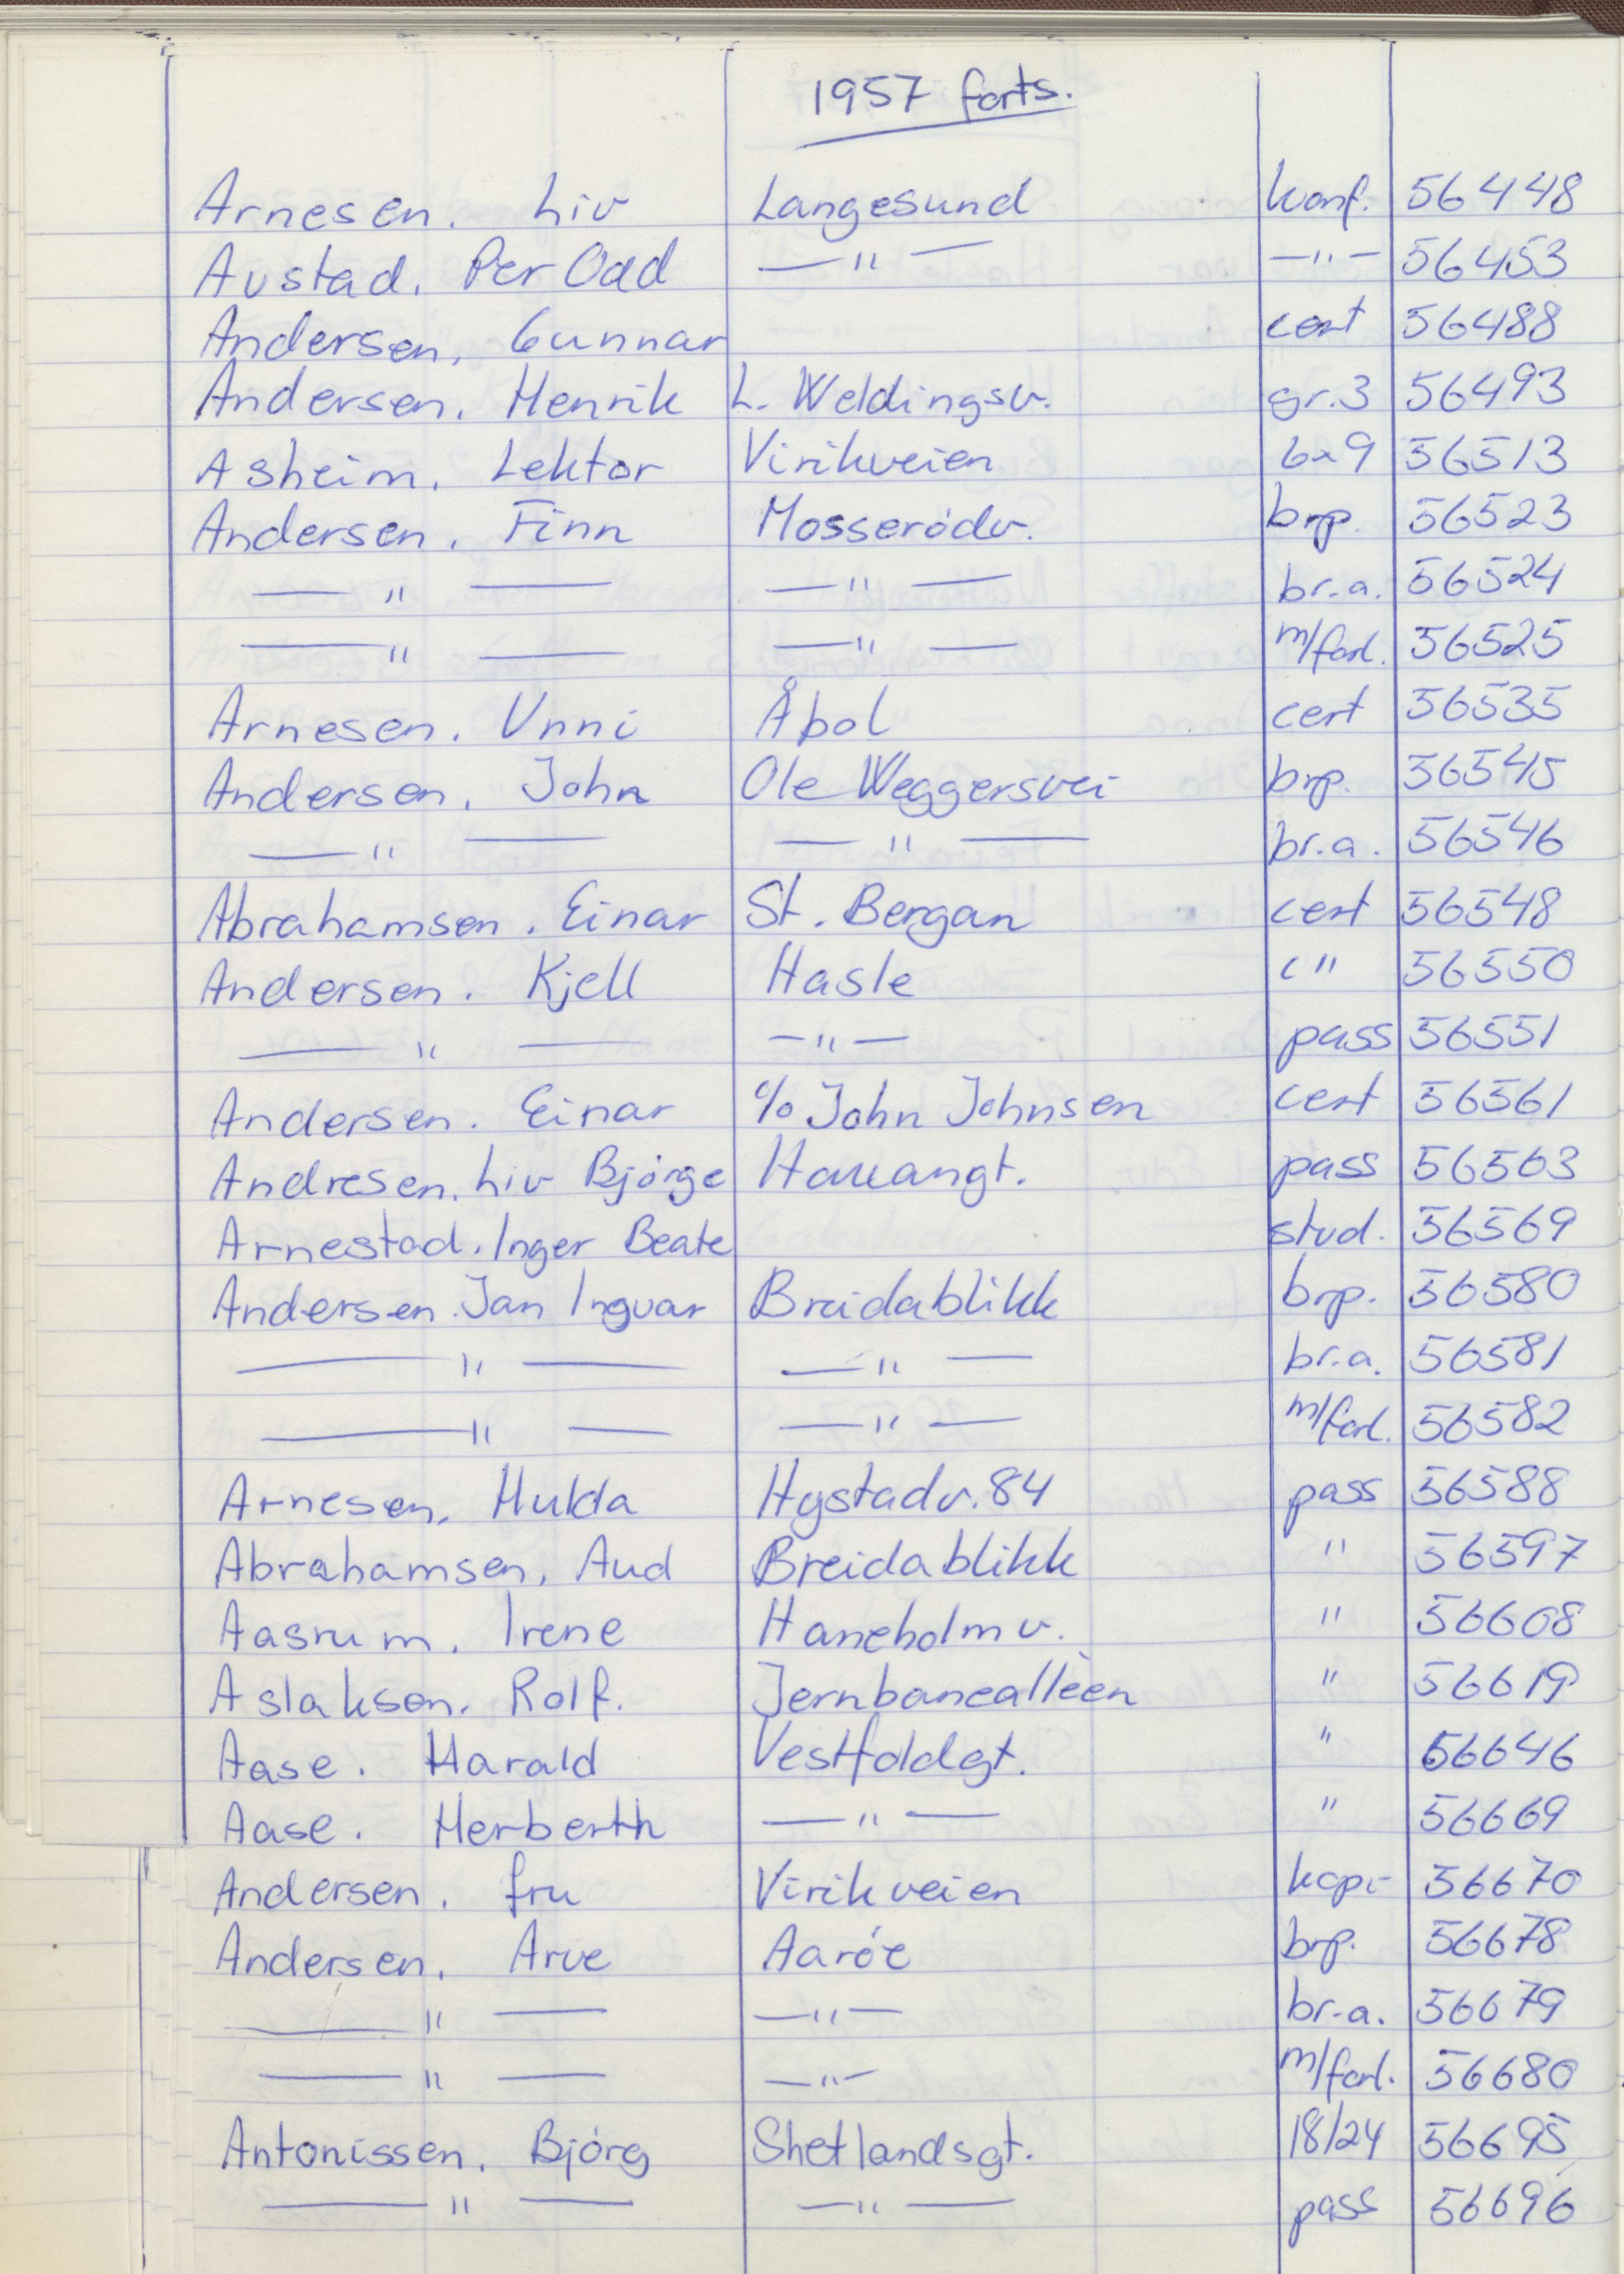 1957 forts.
Arnesen. Liv Langesund konf. 56448
Austad. Per Odd —"— —"— 56453
Andersen. Gunnar cert 56488
Andersen. Henrik L. Weldingsv. gr.3 56493
Asheim. Lektor Virikveien 6x9 56513
Andersen. Finn Mosserødv. brp. 56523
—"— —"— br.a. 56524
—"— —"— m/forl. 56525
Arnesen. Unni Åbol cert 56535
Andersen. John Ole Weggersvei brp. 56545
—"— —"— br.a. 56546
Abrahamsen. Einar St. Bergan cert 56548
Andersen. Kjell Hasle c" 56550
—"— —"— pass 56551
Andersen. Einar c/o John Johnsen cert 56561
Andresen. Liv Bjørge Haukangt. pass 56563
Arnestad. Inger Beate stud. 56569
Andersen. Jan Ingvar Breidablikk brp. 56580
—"— —"— br.a. 56581
—"— —"— m/forl. 56582
Arnesen. Hulda Hystadv. 84 pass 56588
Abrahamsen. Aud Breidablikk " 56597
Aasrum. Irene Haneholmv. " 56608
Aslaksen. Rolf. Jernbanealléen " 56619
Aase. Harald Vestfoldgt. " 56646
Aase. Herberth —"— " 56669
Andersen. fru Virikveien kopi- 56670
Andersen. Arve Aarøe brp. 56678
—"— —"— br.a. 56679
—"— —"— m/forl. 56680
Antonissen. Bjørg Shetlandsgt. 18/24 56695
—"— —"— pass 56696